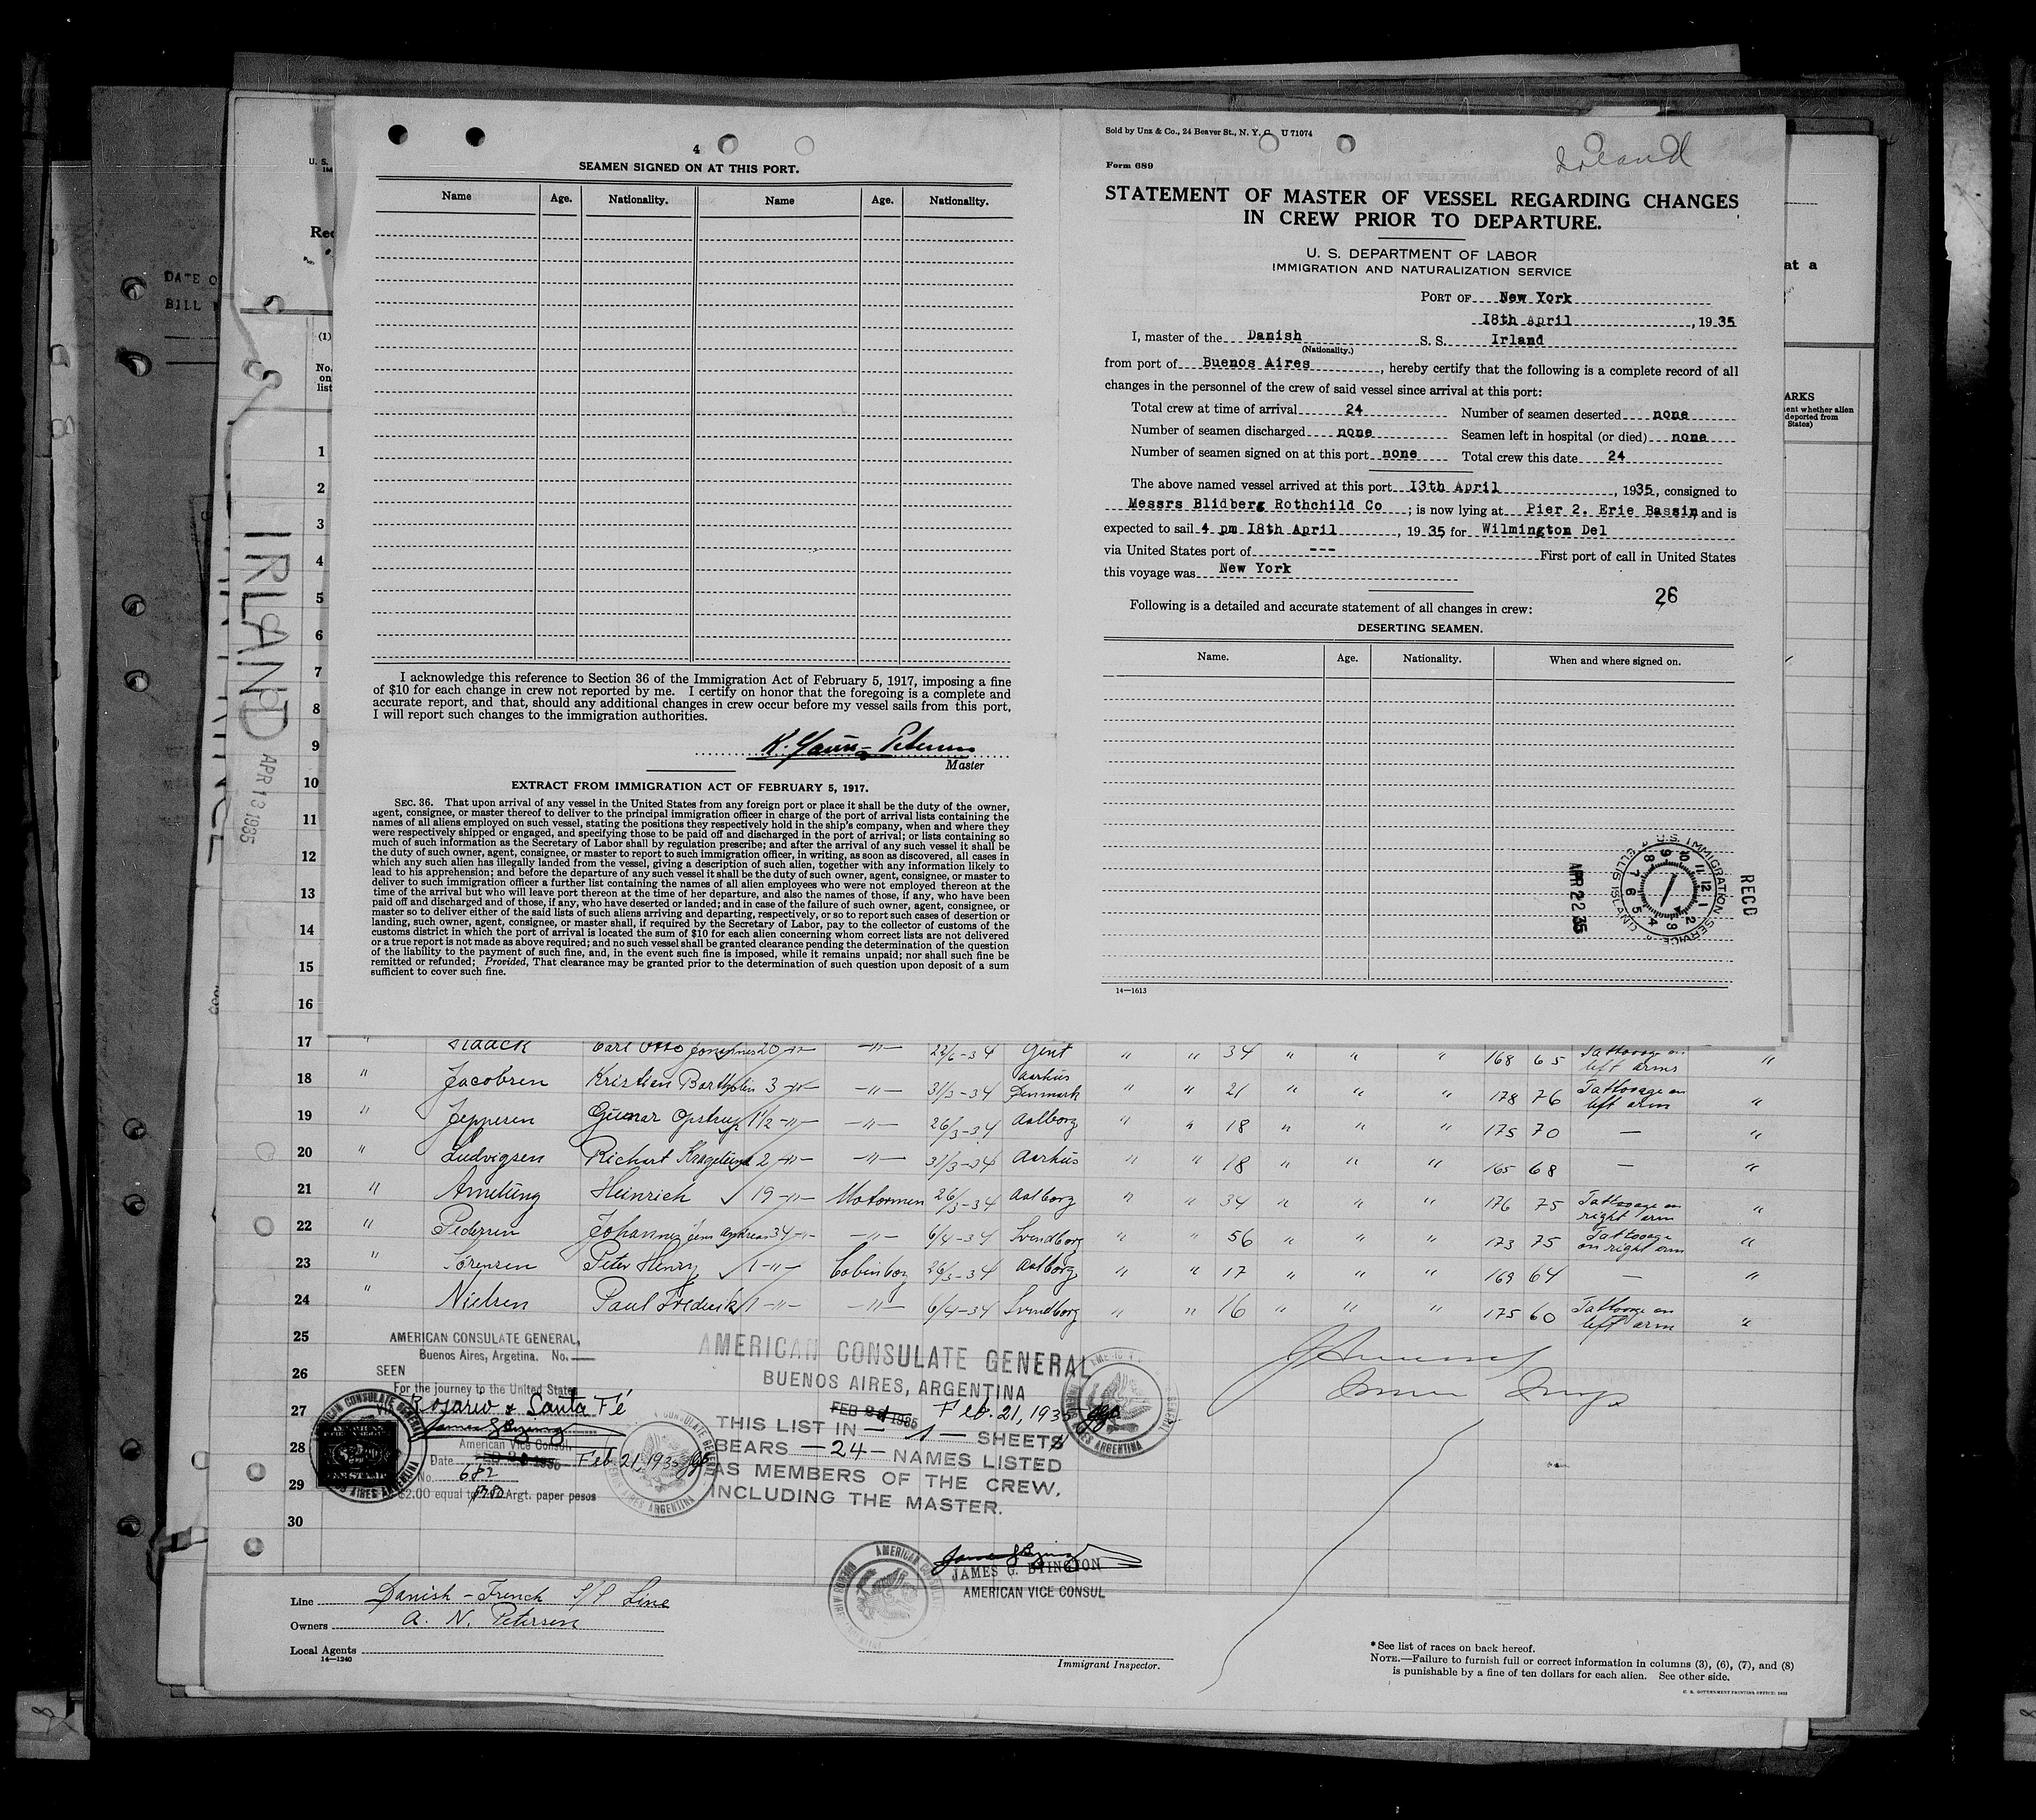 4
SEAMEN SIGNED ON AT THIS PORT.
Name Age. Nationality. Name Age. Nationality.
I acknowledge this reference to Section 36 of the Immigration Act of February 5, 1917, imposing a fine
of $10 for each change in crew not reported by me. I certify on honor that the foregoing is a complete and
accurate report, and that, should any additional changes in crew occur before my vessel sails from this port,
I will report such changes to the immigration authorities.
Master
EXTRACT FROM IMMIGRATION ACT OF FEBRUARY 5, 1917.
SEC. 36. That upon arrival of any vessel in the United States from any foreign port or place it shall be the duty of the owner,
agent, consignee, or master thereof to deliver to the principal immigration officer in charge of the port of arrival lists containing the
names of all aliens employed on such vessel, stating the positions they respectively hold in the ship's company, when and where they
were respectively shipped or engaged, and specifying those to be paid off and discharged in the port of arrival; or lists containing so
much of such information as the Secretary of Labor shall by regulation prescribe; and after the arrival of any such vessel it shall be
the duty of such owner, agent, consignee, or master to report to such immigration officer, in writing, as soon as discovered, all cases in
which any such alien has illegally landed from the vessel, giving a description of such alien, together with any information likely to
lead to his apprehension; and before the departure of any such vessel it shall be the duty of such owner, agent, consignee, or master to
deliver to such immigration officer a further list containing the names of all alien employees who were not employed thereon at the
time of the arrival but who will leave port thereon at the time of her departure, and also the names of those, if any, who have been
paid off and discharged and of those, if any, who have deserted or landed; and in case of the failure of such owner, agent, consignee, or
master so to deliver either of the said lists of such aliens arriving and departing, respectively, or so to report such cases of desertion or
landing, such owner, agent, consignee, or master shall, if required by the Secretary of Labor, pay to the collector of customs of the
customs district in which the port of arrival is located the sum of $10 for each alien concerning whom correct lists are not delivered
or a true report is not made as above required; and no such vessel shall be granted clearance pending the determination of the question
of the liability to the payment of such fine, and, in the event such fine is imposed, while it remains unpaid; nor shall such fine be
remitted or refunded; Provided, That clearance may be granted prior to the determination of such question upon deposit of a sum
sufficient to cover such fine.
Sold by Unz & Co., 24 Beaver St., N. Y. C. U 71074
Form 689
STATEMENT OF MASTER OF VESSEL REGARDING CHANGES
IN CREW PRIOR TO DEPARTURE.
U. S. DEPARTMENT OF LABOR
IMMIGRATION AND NATURALIZATION SERVICE
PORT OF New York
18th April, 1935
I, master of the Danish S. S. Irland
(Nationality.)
from port of Buenos Aires, hereby certify that the following is a complete record of all
changes in the personnel of the crew of said vessel since arrival at this port:
Total crew at time of arrival 24 Number of seamen deserted none
Number of seamen discharged none Seamen left in hospital (or died) none
Number of seamen signed on at this port none Total crew this date 24
The above named vessel arrived at this port 13th April, 1935, consigned to
Messrs Blidberg Rothchild Co; is now lying at Pier 2. Erie Bassin and is
expected to sail 4 pm 18th April, 1935 for Wilmington Del
via United States port of --- First port of call in United States
this voyage was New York
26
Following is a detailed and accurate statement of all changes in crew:
DESERTING SEAMEN.
Name. Age. Nationality. When and where signed on.
U.S. IMMIGRATION SERVICE ELLIS ISLAND
APR 22 35
RECD
14—1613
DATE O
BILL
U. S.
IM
Rec
(1)
No.
on
list
IRLAND
APR 13 1935
at a
ARKS
ent whether alien
deported from
States)
1
2
3
4
5
6
7
8
9
10
11
12
13
14
15
16
17 " Carl Otto 20 -"- -"- 22/6-34 Gent " " 34 " " " 168 65 Tattooage on left arms "
18 " Jacobsen Kristian 3 -"- -"- 31/3-34 Aarhus Denmark " " 21 " " " 178 76 Tattooage on left arm "
19 " Jeppesen Gunnar Opstrup 1 1/2 -"- -"- 26/3-34 Aalborg " " 18 " " " 175 70 — "
20 " Ludvigsen Richart Kragelund 2 -"- -"- 31/3-34 Aarhus " " 18 " " " 165 68 — "
21 " Amelung Heinrich 19 -"- Motormen 26/3-34 Aalborg " " 34 " " " 176 75 Tattooage on right arm "
22 " Pedersen Johannes Jens Andreas 34 -"- -"- 6/4-34 Svendborg " " 56 " " " 173 75 Tattooage on right arm "
23 " Sørensen Peter Henry 1 -"- Cabinboy 26/3-34 Aalborg " " 17 " " " 169 64 — "
24 " Nielsen Paul Frederik 1 -"- -"- 6/4-34 Svendborg " " 16 " " " 175 60 Tattooage on left arm "
25
26
27
28
29
30
AMERICAN CONSULATE GENERAL,
Buenos Aires, Argetina. No.
SEEN
For the journey to the United States
VIA Rosario & Santa Fé
American Vice Consul.
Date Feb 21, 1935
No. 682
$2.00 equal to Argt. paper pesos
AMERICAN CONSULATE GENERAL
BUENOS AIRES, ARGENTINA
Feb. 21, 1935
THIS LIST IN — 1 — SHEETS
BEARS — 24 — NAMES LISTED
AS MEMBERS OF THE CREW,
INCLUDING THE MASTER.
JAMES G. BYINGTON
AMERICAN VICE CONSUL
Line Danish - French S/S Line
Owners A. N. Petersen
Local Agents
14—1240
Immigrant Inspector.
* See list of races on back hereof.
NOTE.—Failure to furnish full or correct information in columns (3), (6), (7), and (8)
is punishable by a fine of ten dollars for each alien. See other side.